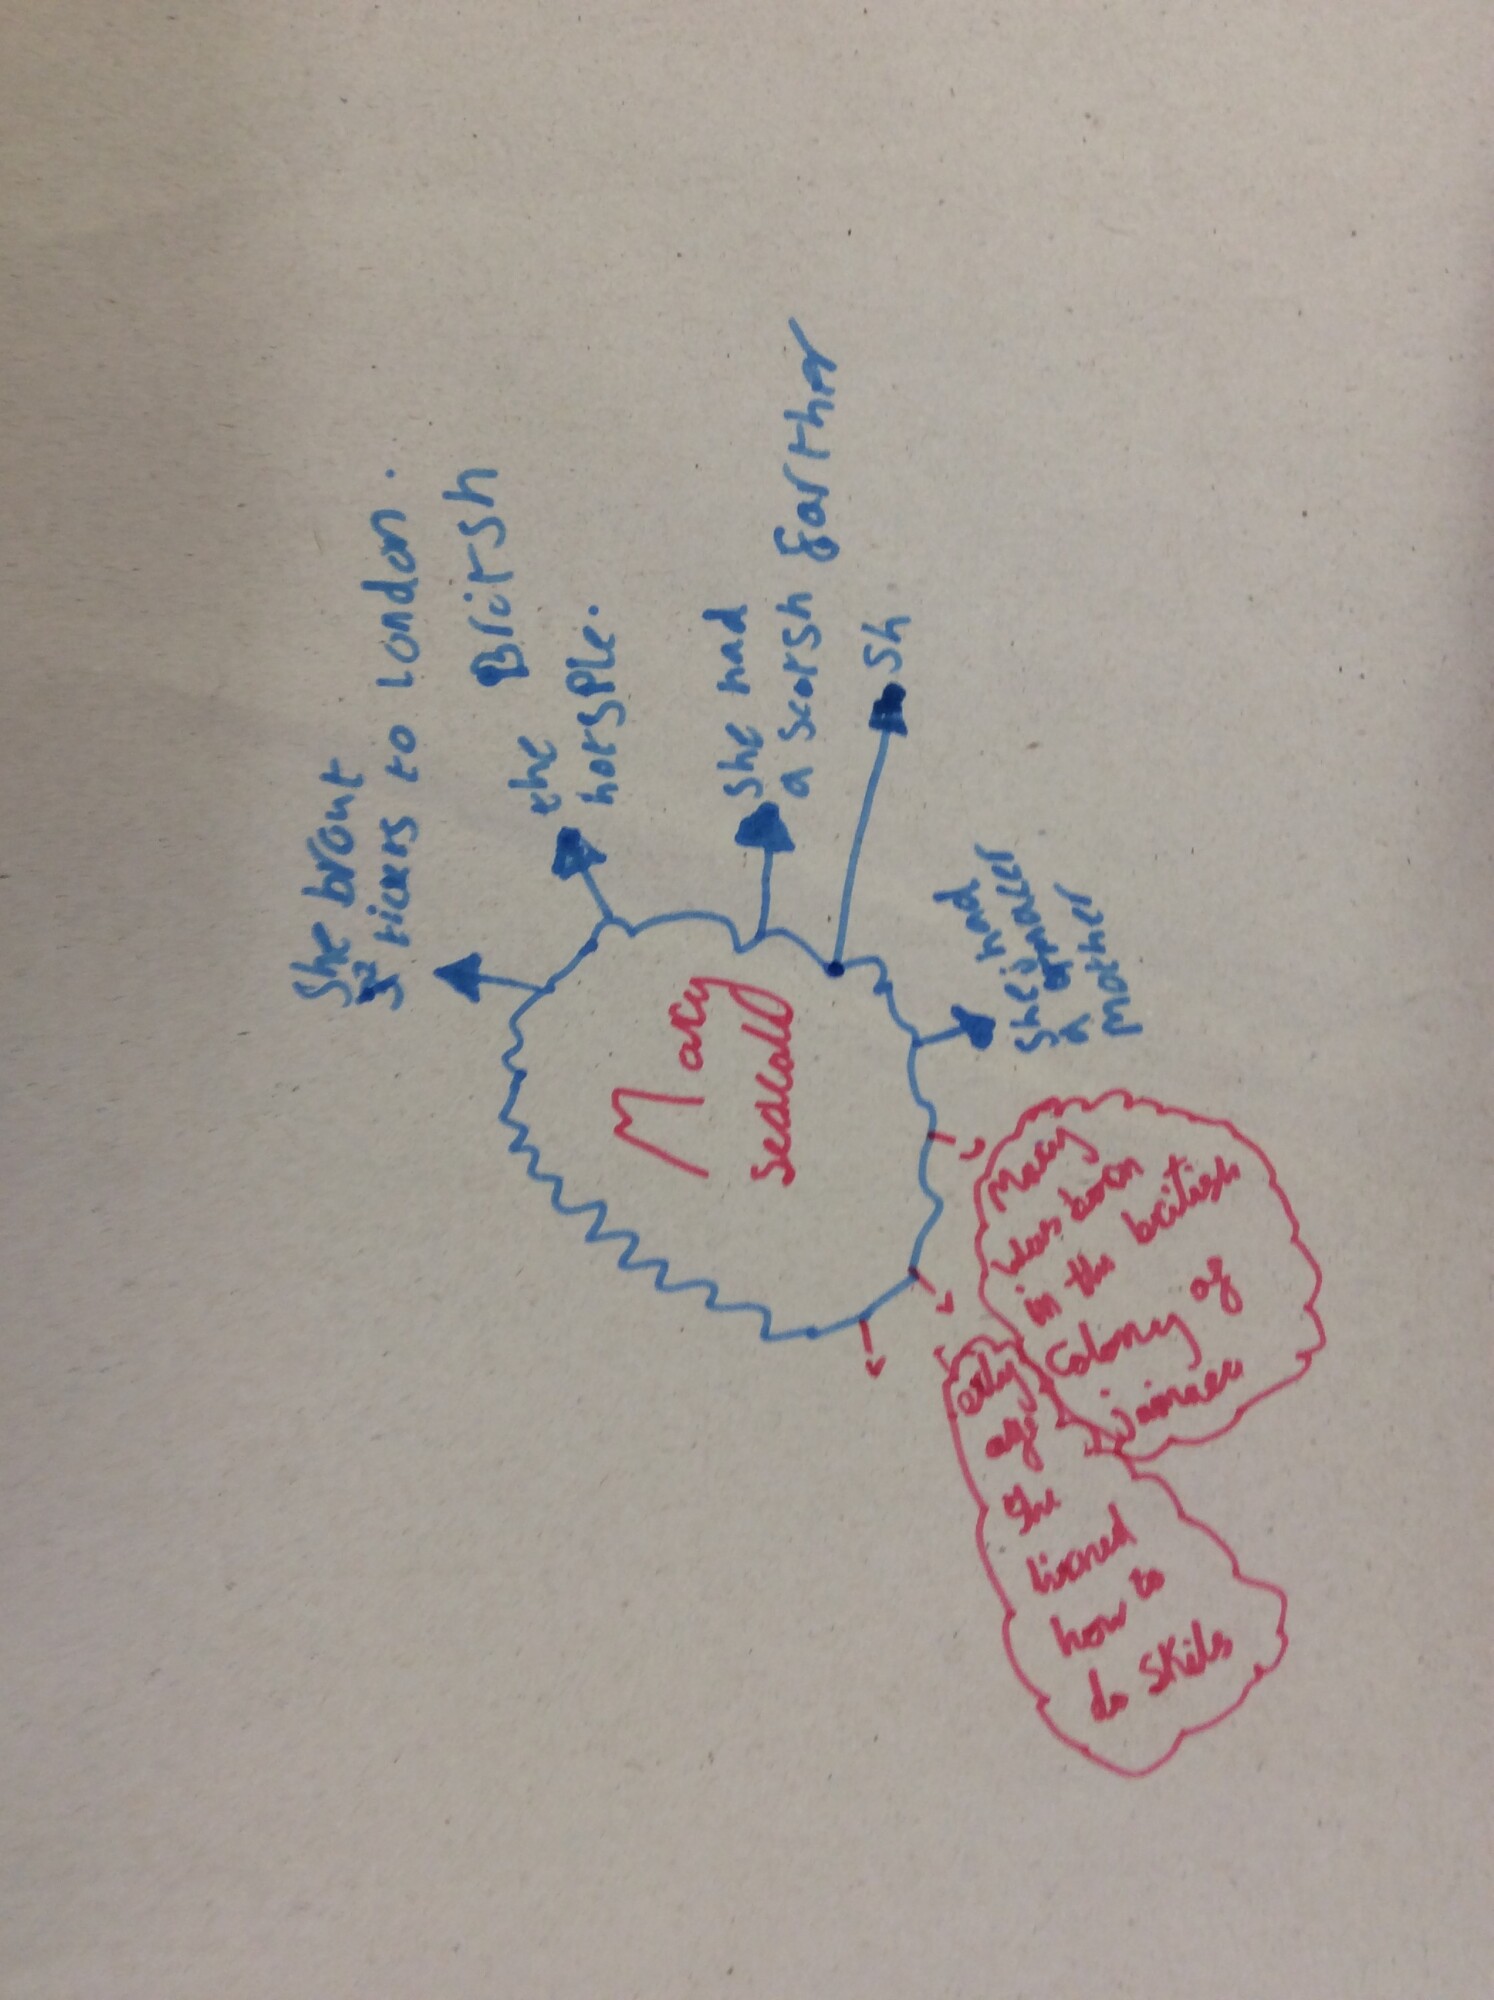 Mary
seacall
She brout
tickers to London.
the British
hotsple.
she had
a scotsh farther
Sh
she had
a
mother
Mary
was born
in the british
Colony of
jamaca
erly
age
she
lirned
how to
do skils